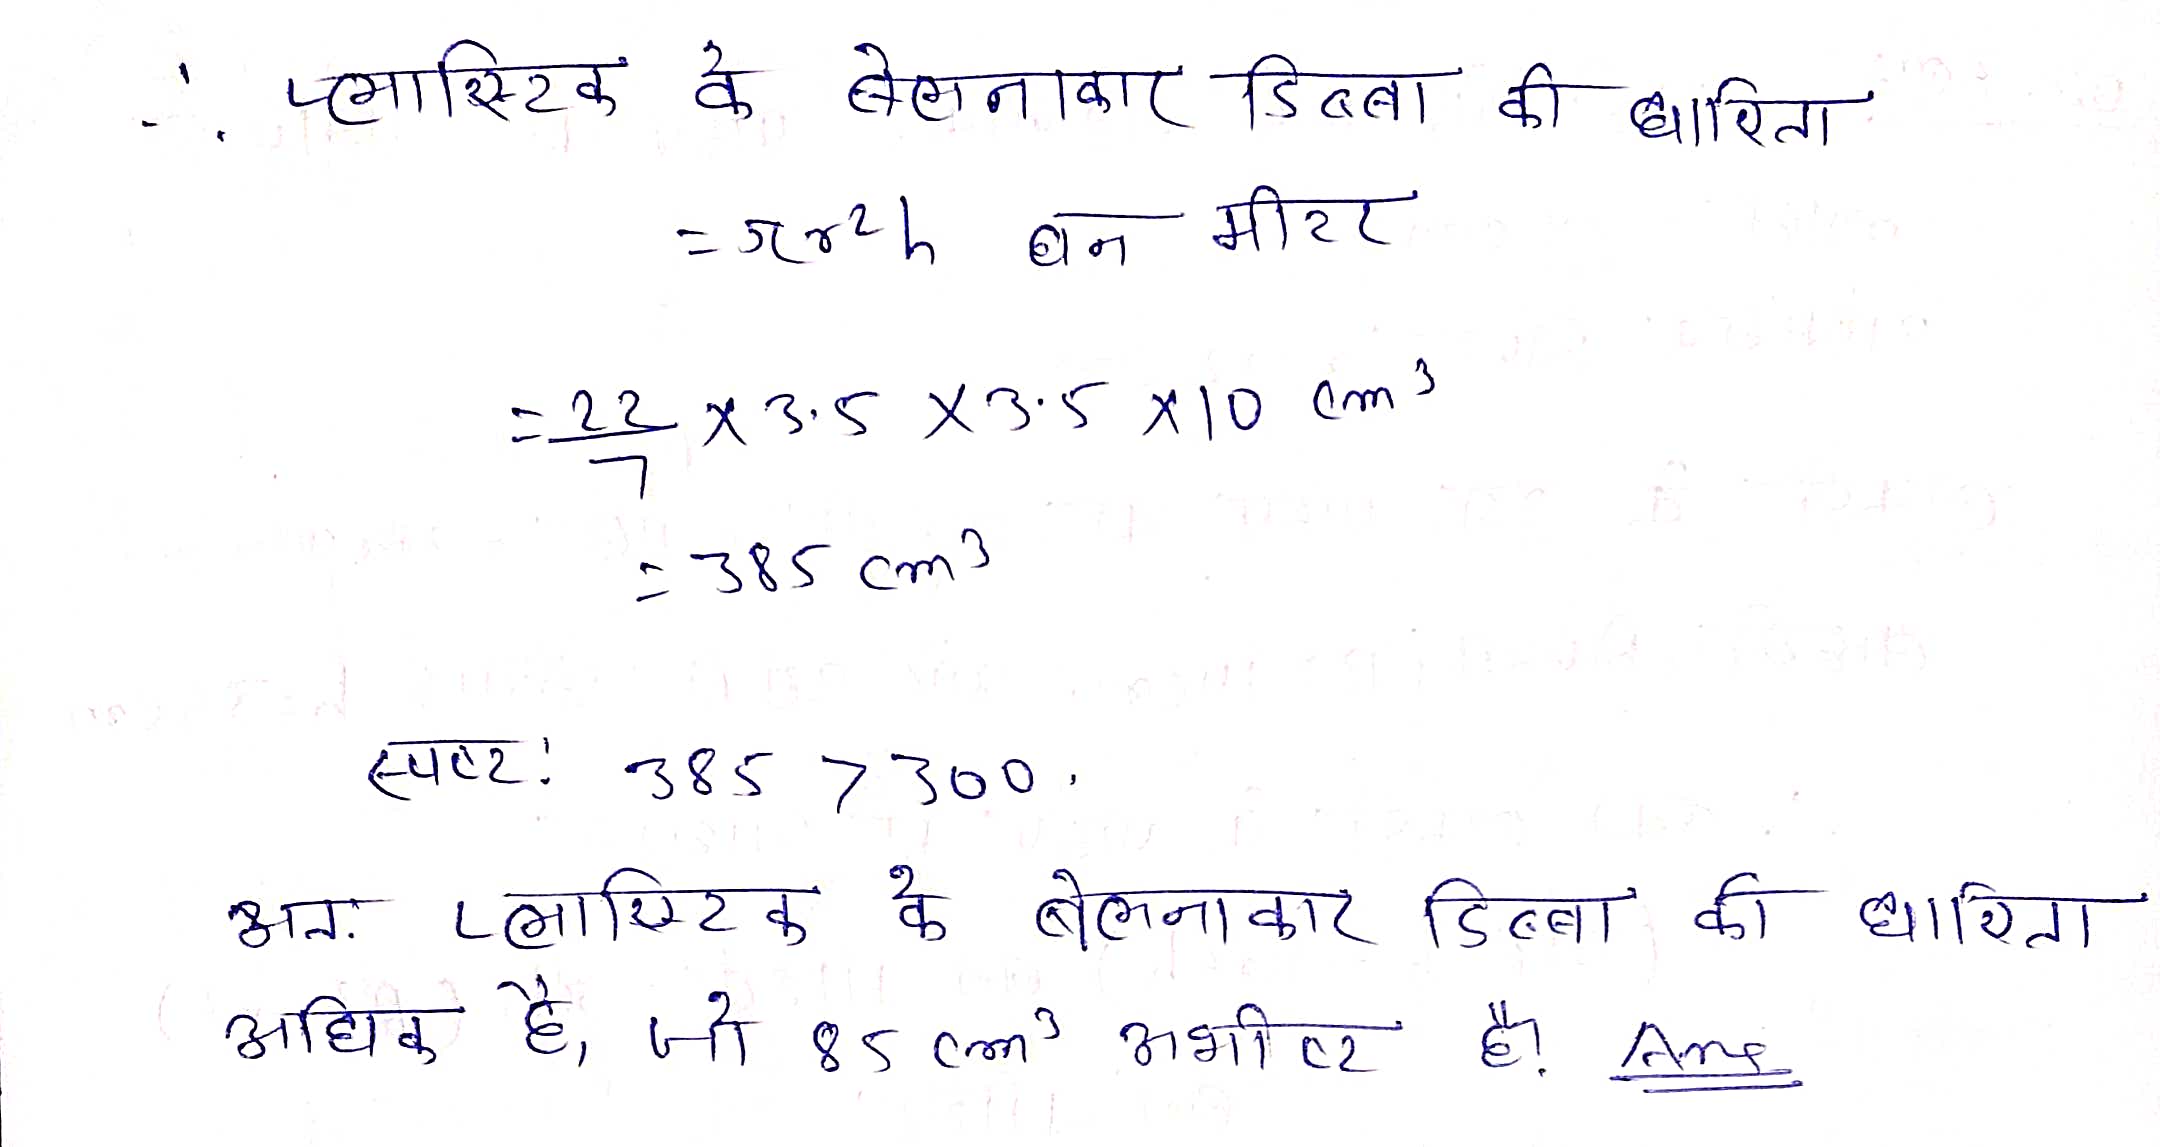 ∴ प्लास्टिक के बेलनाकार डिब्बा की धारिता
= πr²h घन मीटर
= 22/7 × 3.5 × 3.5 × 10 cm³
= 385 cm³
स्पष्ट: 385 > 300.
अतः प्लास्टिक के बेलनाकार डिब्बा की धारिता
अधिक है, जो 85 cm³ अभीष्ट है। Ans